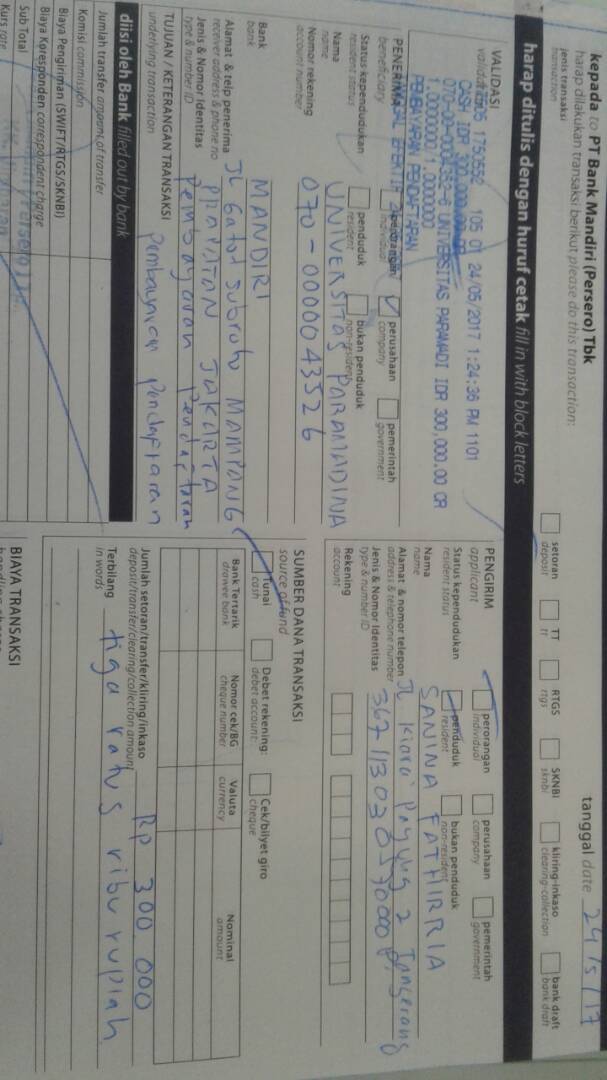 kepada to PT Bank Mandiri (Persero) Tbk
harap dilakukan transaksi berikut please do this transaction:
tanggal date 24/5/17
jenis transaksi
transaction
setoran
deposit
TT
TT
RTGS
rtgs
SKNBI
sknbi
kliring-inkaso
clearing-collection
bank draft
bank draft
harap ditulis dengan huruf cetak fill in with block letters
VALIDASI
validation
1750552 105 01 24/05/2017 1:24:36 PM 1101
CASH IDR 300,000.00
UNIVERSITAS PARAMADI IDR 300,000.00 CR
1.0000000 1.0000000
PEMBAYARAN PENDAFTARAN
PENERIMA
beneficiary
perorangan
individual
perusahaan
company
pemerintah
government
Status kependudukan
resident status
penduduk
resident
bukan penduduk
non-resident
Nama
name
UNIVERSITAS PARAMADINA
Nomor rekening
account number
070-0000043526
Bank
bank
MANDIRI
Alamat & telp penerima
receiver address & phone no
JL Gatot subroto MAMPANG
Jenis & Nomor Identitas
type & number ID
JAKARTA
TUJUAN / KETERANGAN TRANSAKSI
underlying transaction
Pembayaran Pendaftaran
pembayaran pendaftaran
diisi oleh Bank filled out by bank
Jumlah transfer amount of transfer
Komisi commission
Biaya Pengiriman (SWIFT/RTGS/SKNBI)
Biaya Koresponden correspondent charge
Sub Total
Kurs rate
PENGIRIM
applicant
perorangan
individual
perusahaan
company
pemerintah
government
Status kependudukan
resident status
penduduk
resident
bukan penduduk
non-resident
Nama
name
SANINA FATHIRRIA
Alamat & nomor telepon
address & telephone number
JL Kiara Payung 2 Tangerang
Jenis & Nomor Identitas
type & number ID
Rekening
account
SUMBER DANA TRANSAKSI
source of fund
Tunai
cash
Debet rekening:
debet account:
Cek/bilyet giro
cheque
Bank Tertarik
drawee bank
Nomor cek/BG
cheque number
Valuta
currency
Nominal
amount
Jumlah setoran/transfer/kliring/inkaso
deposit/transfer/clearing/collection amount
Rp 300 000
Terbilang
in words
tiga ratus ribu rupiah
BIAYA TRANSAKSI